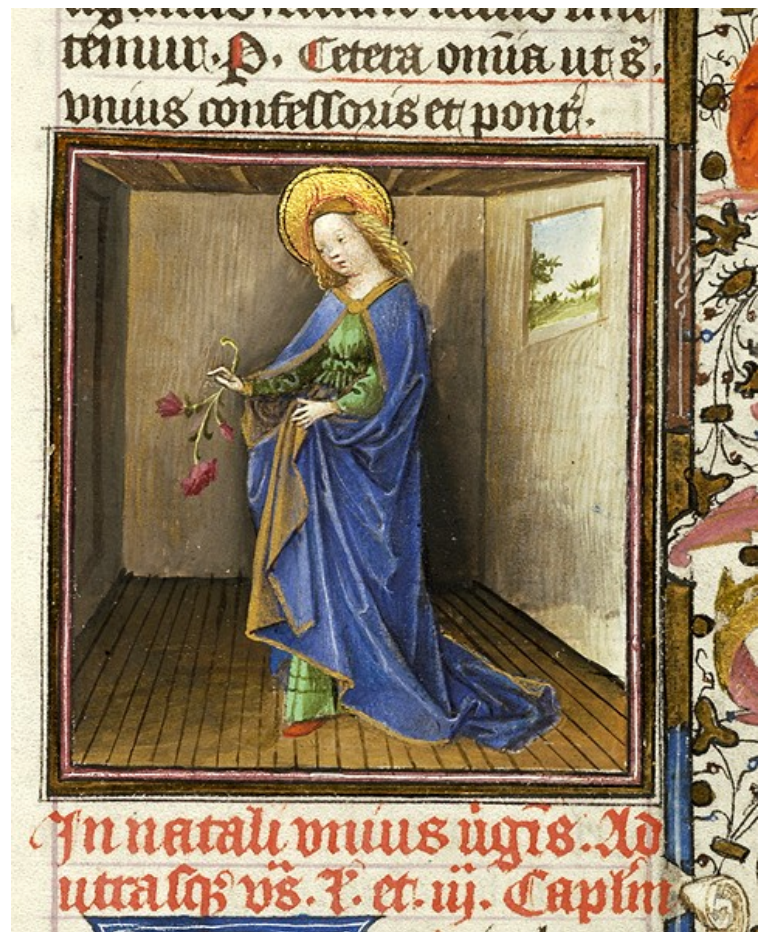 temur. P. Cetera om̄ia ut s̄.
vnius confessoris et pont̄.
In natali vnius ūgis̄. Ad
utrasqꝫ vs̄. I. et. iij. Caplm̄